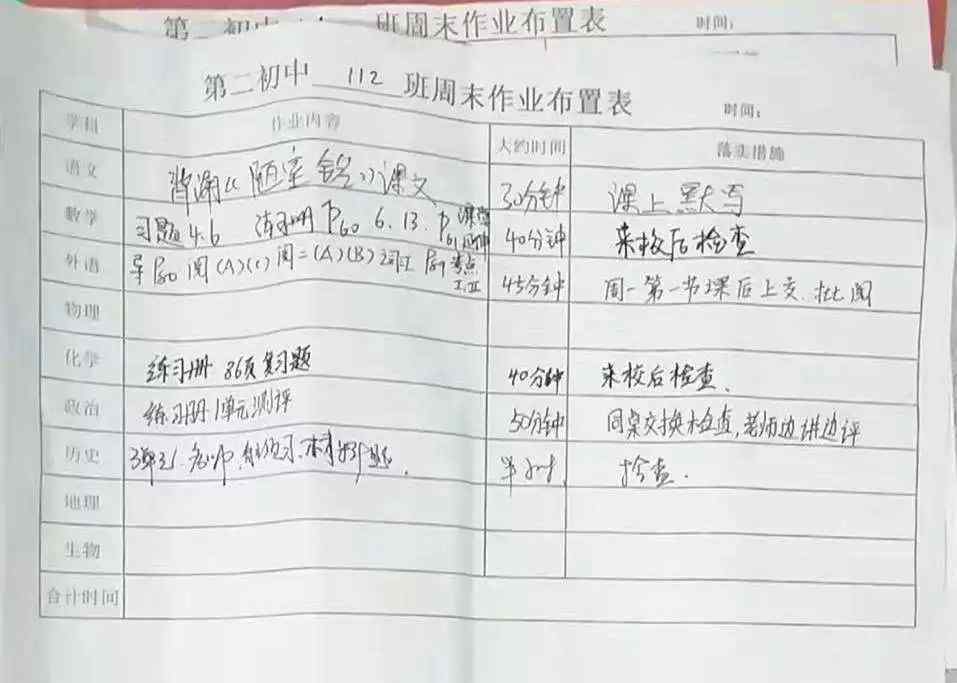 第二初中 班周末作业布置表 时间:
第二初中 112 班周末作业布置表 时间:
学科 作业内容 大约时间 落实措施
语文 背诵《陋室铭》课文 30分钟 课上默写
数学 习题4.6 练习册 P60 6. 13. P61 40分钟 来校后检查
外语 P60 阅(A)(C) 阅二(A)(B) I. II 45分钟 周一第一节课后上交. 批阅
物理
化学 练习册 86页复习题 40分钟 来校后检查.
政治 练习册1单元测评 50分钟 同桌交换检查,老师边讲边评
历史 检查.
地理
生物
合计时间